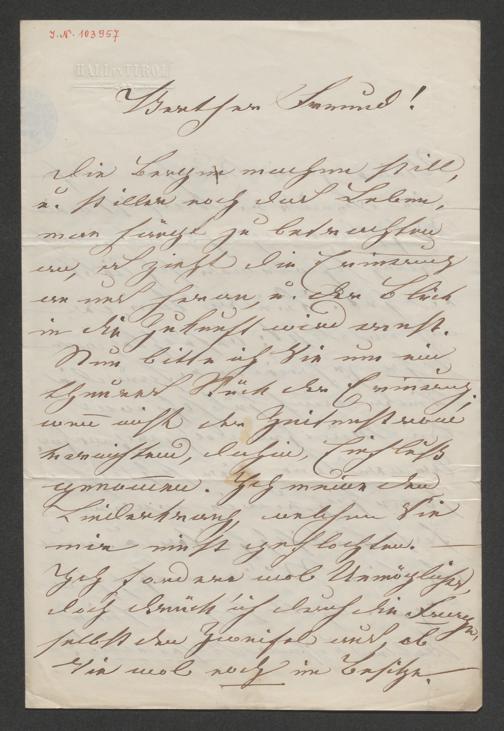 J.N. 103957
HALL in TIROL
Werther Freund!
Die Berge machen still,
u. stiller noch das Leben,
man fängt zu betrachten
an, es zieht die Erinnerung
an uns heran, u. der Blick
in die Zukunft wird ernst.
Nun bitte ich Sie um ein
theures Stück der Erinnerung,
wenn nicht der Zeitenstrom
vernichtend, dahin Einfluß
genommen. Ich meine den
Liederkranz, welchen Sie
mir einst geflochten. —
Ich fordere wol Unmögliches,
doch drück' ich durch die Frage,
selbst den Zweifel aus, ob
Sie wol noch im Besitze. —